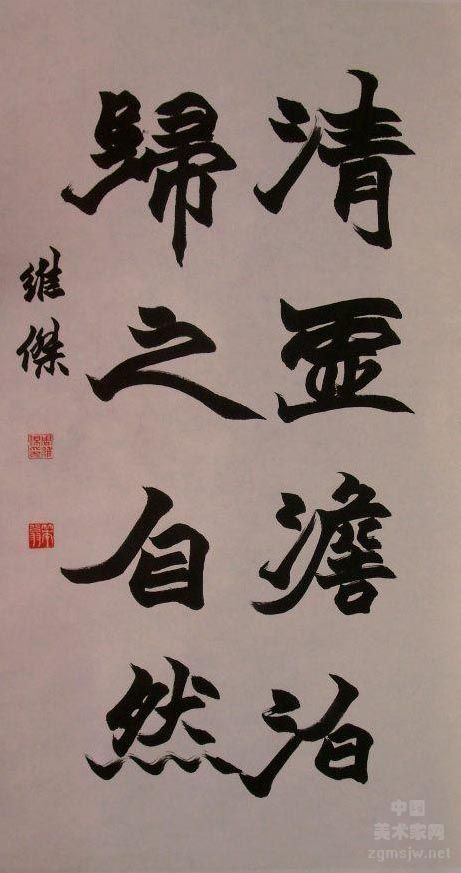 清虛澹泊
歸之自然
維傑
中国
美术家网
zgmsjw.net